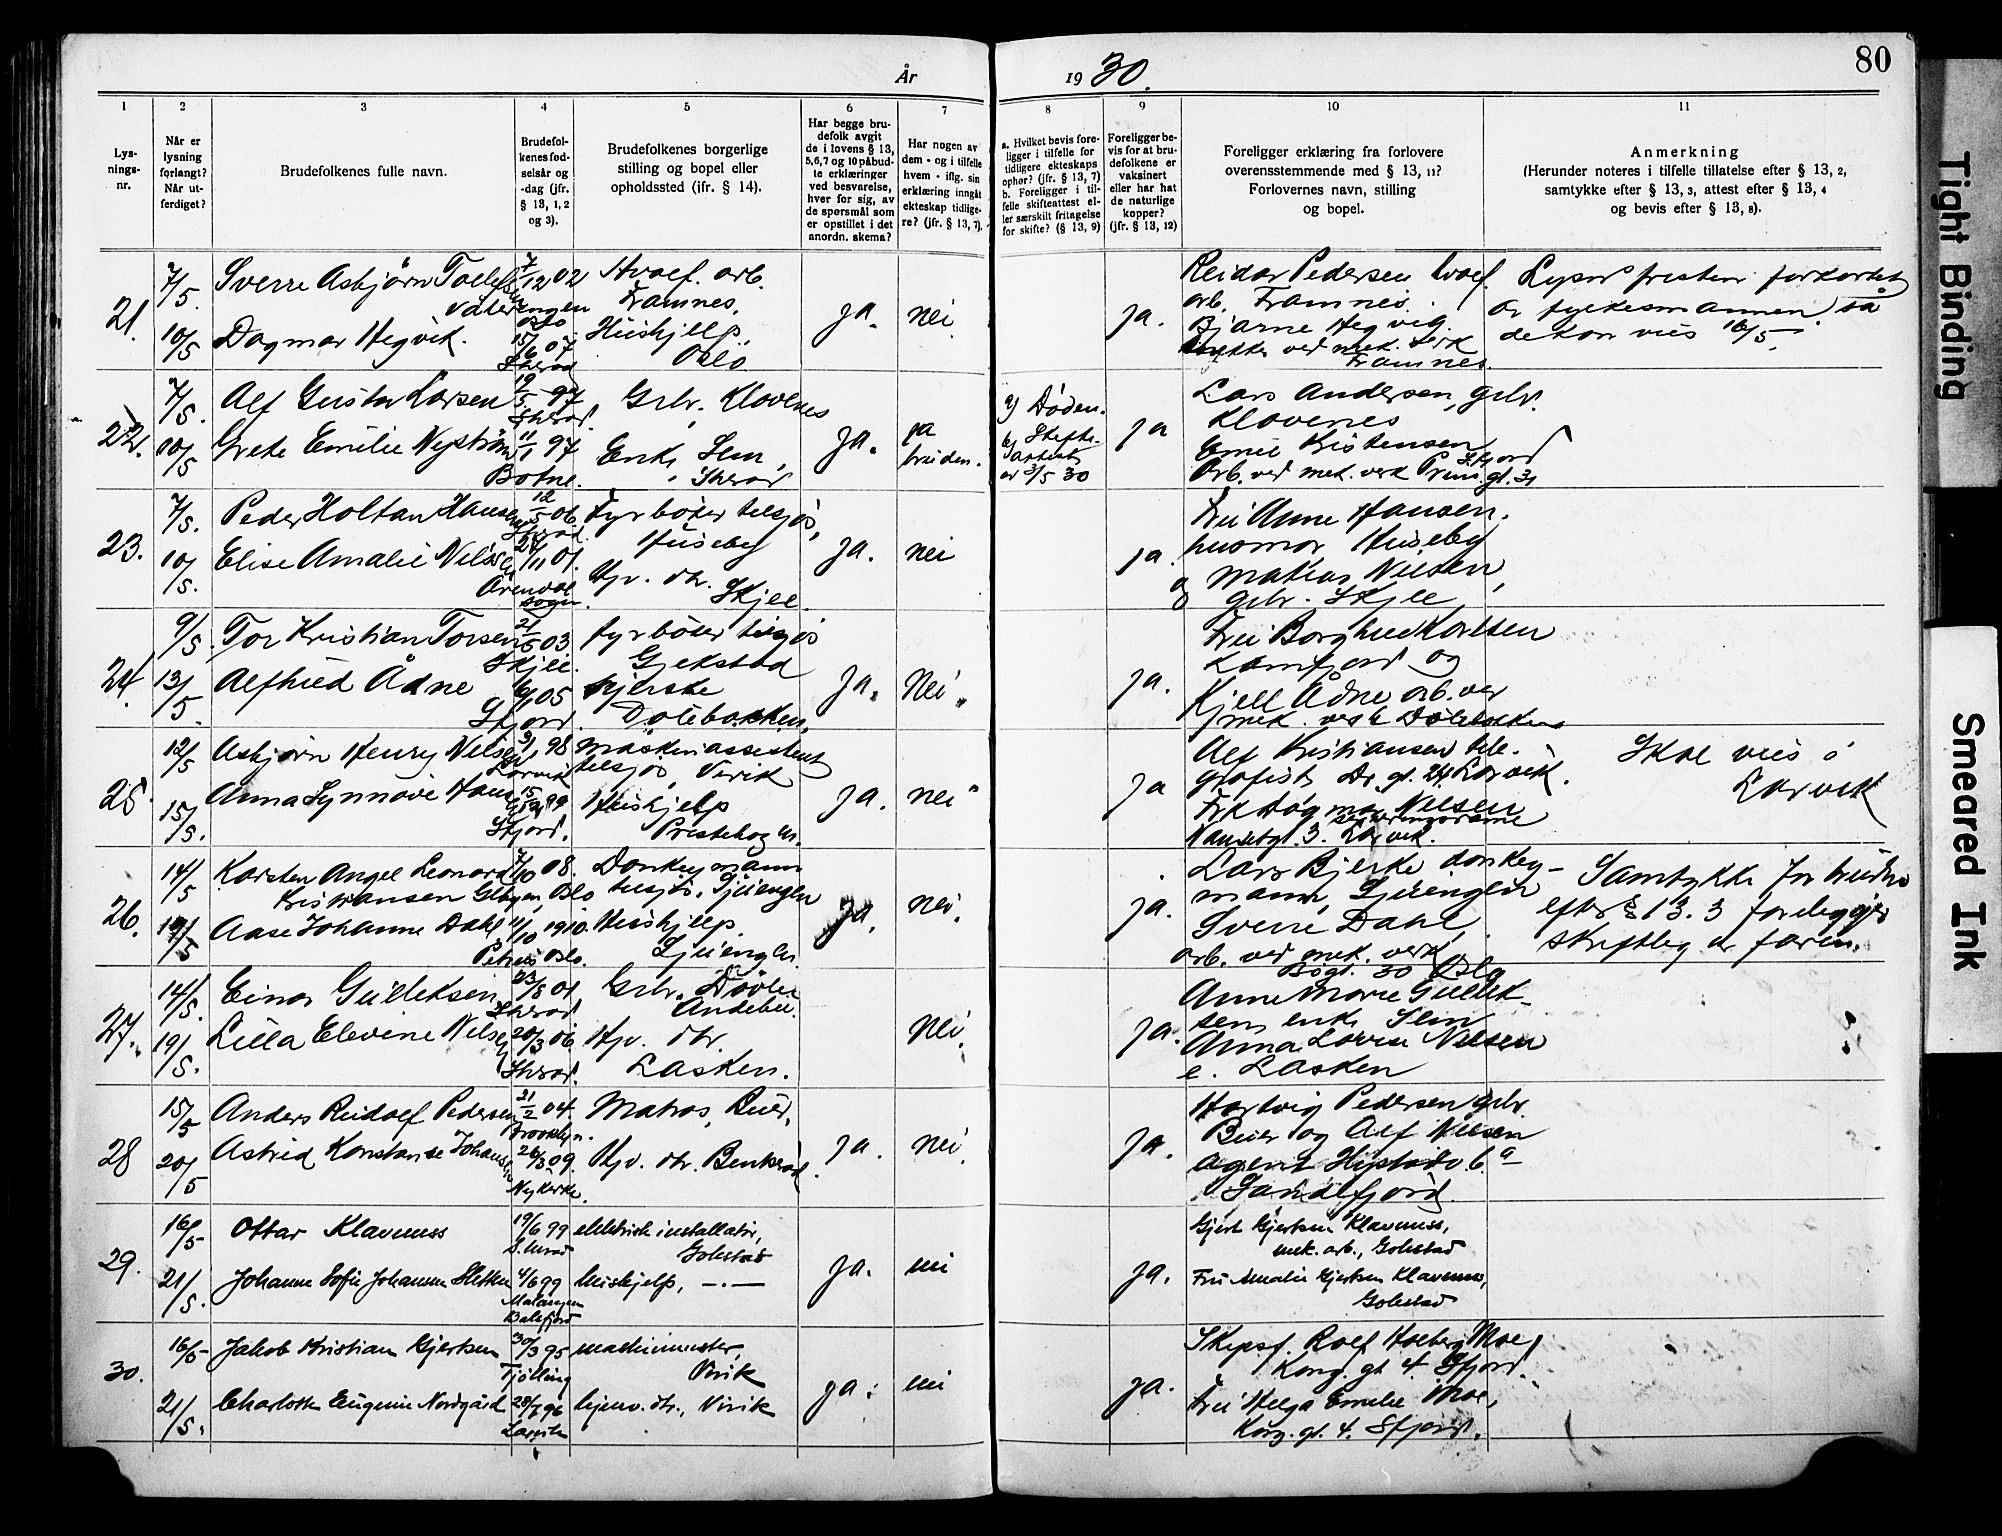 80
År 1930.
1
2
3
4
5
6
7
8
9
10
11
Lys-
nings-
nr.
Når er
lysning
forlangt?
Når ut-
ferdiget?
Brudefolkenes fulle navn.
Brudefol-
kenes fød-
selsår og
-dag (jfr.
§ 13, 1, 2
og 3).
Brudefolkenes borgerlige
stilling og bopel eller
opholdssted (jfr. § 14).
Har begge bru-
defolk avgit
de i lovens § 13,
5,6,7 og 10 påbud-
te erklæringer
ved besvarelse,
hver for sig, av
de spørsmål som
er opstillet i det
anordn. skema?
Har nogen av
dem - og i tilfelle
hvem - iflg. sin
erklæring inngått
ekteskap tidlige-
re? (jfr. § 13, 7).
a. Hvilket bevis fore-
ligger i tilfelle for
tidligere ekteskaps
ophør? (jfr. § 13, 7)
b. Foreligger i til-
felle skifteattest el-
ler særskilt fritagelse
for skifte? (§ 13, 9)
Foreligger be-
vis for at bru-
defolkene er
vaksinert
eller har hat
de naturlige
kopper?
(jfr. § 13, 12)
Foreligger erklæring fra forlovere
overensstemmende med § 13, 11?
Forlovernes navn, stilling
og bopel.
Anmerkning
(Herunder noteres i tilfelle tillatelse efter § 13, 2,
samtykke efter § 13, 3, attest efter § 13, 4
og bevis efter § 13, 8).
21.
7/5.
Sverre Asbjørn Tollefsen
7/12 02
Vålerengen
Oslo
Hvalf. arb.
Framnes.
10/5
Dagmar Hegvik.
15/6 07
Sherad
Hushjelp,
Oslo.
ja.
nei.
ja.
Reidar Pedersen hvalf.
arb. Framnes.
Bjarne Hegvig.
ved mek. verk
Framnes.
Lysn. fristen forkortet
av fylkesmannen så
de kan vies 16/5.
22.
7/5.
Alf Gustav Larsen
19/5 97
Sherad.
Grbr. Klavenes
10/5
Grete Emilie Nyström
11/1 97
Botne.
Enke, Sem,
Sherad
ja.
ja
bruden.
a) Døden.
b) Skifte-
attest
av 3/5 30
ja
Lars Andersen, grbr.
Klavenes
Emil Kristensen
Sfjord
Arb. ved mek. verk Prins. gt. 31
23.
7/5.
Peder Holtan Hansen
12/5 06
Sherad.
Fyrbøter tilsjøs,
Huseby
10/5.
Elise Amalie Nilsen
24/11 01.
Arendal
sogn.
Hjv. dtr. Skjee.
ja.
nei
ja.
Fru Anne Hansen.
husmor Huseby
og Matias Nilsen,
grbr. Skjee,
24.
9/5.
Tor Kristian Torsen
21/5 03
Skjee.
fyrbøter tilsjøs
Gjekstad
13/5.
Alfhild Ådne
6/1 05
Sfjord.
syerske
Dølebakken.
ja.
Nei.
ja.
Fru Borghild Karlsen
Kamfjord og
Kjell Ådne arb. ved
mek. verk Dølebakken
25.
12/5
Asbjørn Henry Nilsen
3/1 98
Larvik
Maskinassistent
tilsjøs, Virik
15/5.
Anna Synnøve
99
Sfjord.
Hushjelp
Prestehagen.
ja.
nei
ja
Alf Kristiansen tele-
grafist, Dr. gt. 24 Larvik.
Frk Dagmar Nilsen
Nansetgt. 3. Larvik.
Skal vies i
Larvik
26.
14/5
Karsten Angel Leonard
7/10 08.
Kristiansen Gbyen, Oslo
Donkeymann
tilsjøs, Ljuengen
19/5
Aase Johanne Dahl
11/10 1910.
Petrus Oslo.
Hushjelp.
Ljuengen.
ja.
nei.
ja.
Lars Bjerke donkey-
mann, Ljuengen
Sverre Dahl,
arb. ved mek. verk,
Bogt. 30 Oslo
Samtykke for bruden
efter § 13.3 foreligger
skriftlig av faren.
27.
14/5.
Einar Gulliksen
23/8 01
Sherad
Grbr. Døvle
Andebu.
19/5.
Lilla Elevine Nilsen
20/3 06
Sherad.
Hjv. dtr.
Lasken.
Nei.
ja.
Anne Marie Gullik-
sen, enke Sem
Anna Lovise Nilsen
e. Lasken
28
15/5
Anders Rudolf Pedersen
21/2 04.
Brooklyn.
Matros, Buer,
20/5
Astrid Konstanse Johansen
26/3 09.
Nykirke.
Hjv. dtr. Benterød.
ja.
nei.
ja.
Hartvig Pedersen grbr.
Buer og Alf Nilsen
agent Hystadv. 6a
Sandefjord.
29.
16/5
Ottar Klaveness
19/6 99
S.herad
elektrisk installatør,
Gokstad
21/5.
Johanne Sofie Johanne Sletten
4/6 99
Malangen
Balsfjord
hushjelp, -.-
ja.
nei
ja.
Gjert Gjertsen Klavenes,
mek. arb., Gokstad
Fru Amalie Gjertsen Klavenes,
Gokstad
30.
16/5
Jakob Kristian Gjertsen
30/3 95
Tjølling
maskinmester,
Virik
21/5.
Charlotte Eugenie Nordgård
28/7 96
Larvik
hjemv. dtr., Virik
ja.
nei
ja.
Skipsf. Rolf Holberg Moe,
Kong. gt 4. Sfjord.
Fru Helga Emilie Moe,
Kong. gt. 4. Sfjord.
Tight Binding
Smeared Ink